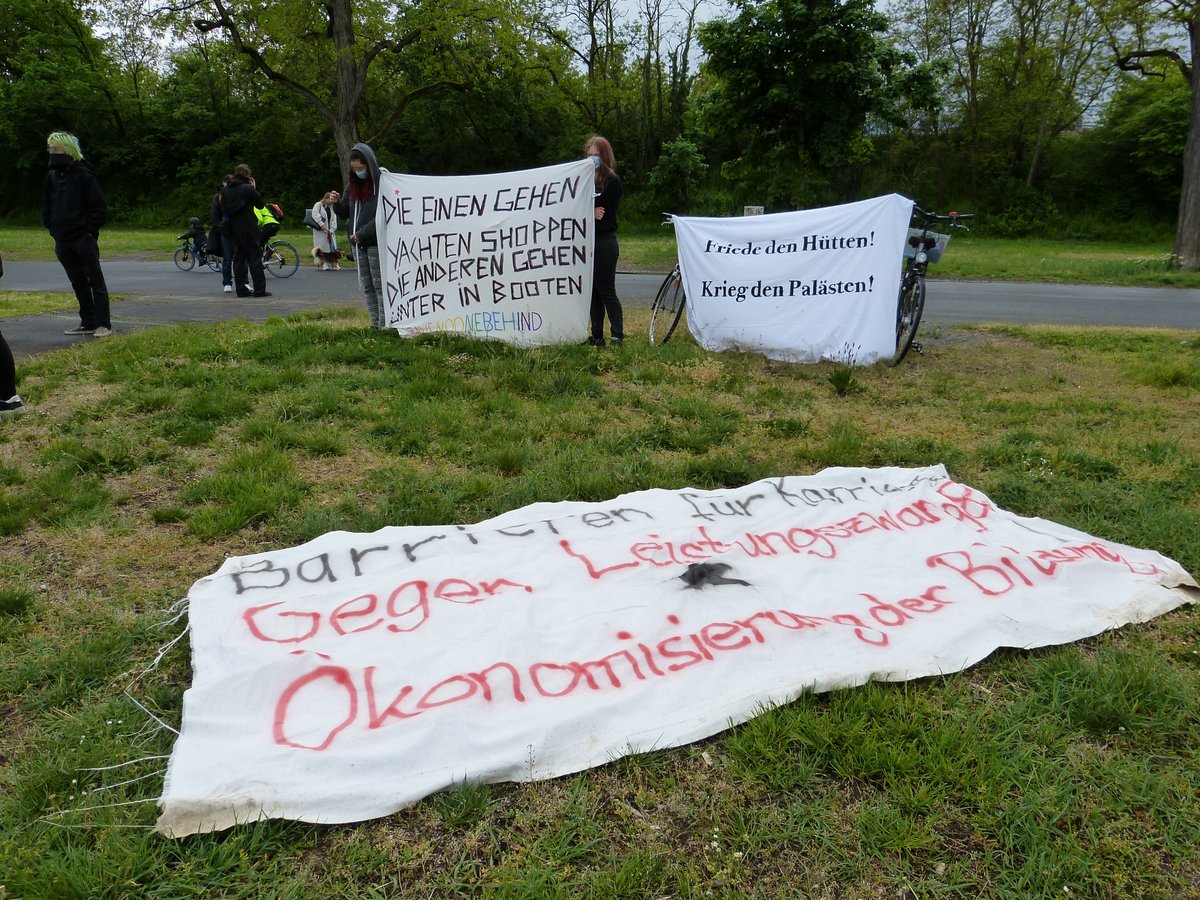 DIE EINEN GEHEN
YACHTEN SHOPPEN
DIE ANDEREN GEHEN
UNTER IN BOOTEN
NOONEBEHIND
Friede den Hütten!
Krieg den Palästen!
Barrieren für
Gegen Leistungszwang &
Ökonomisierung der Bildung